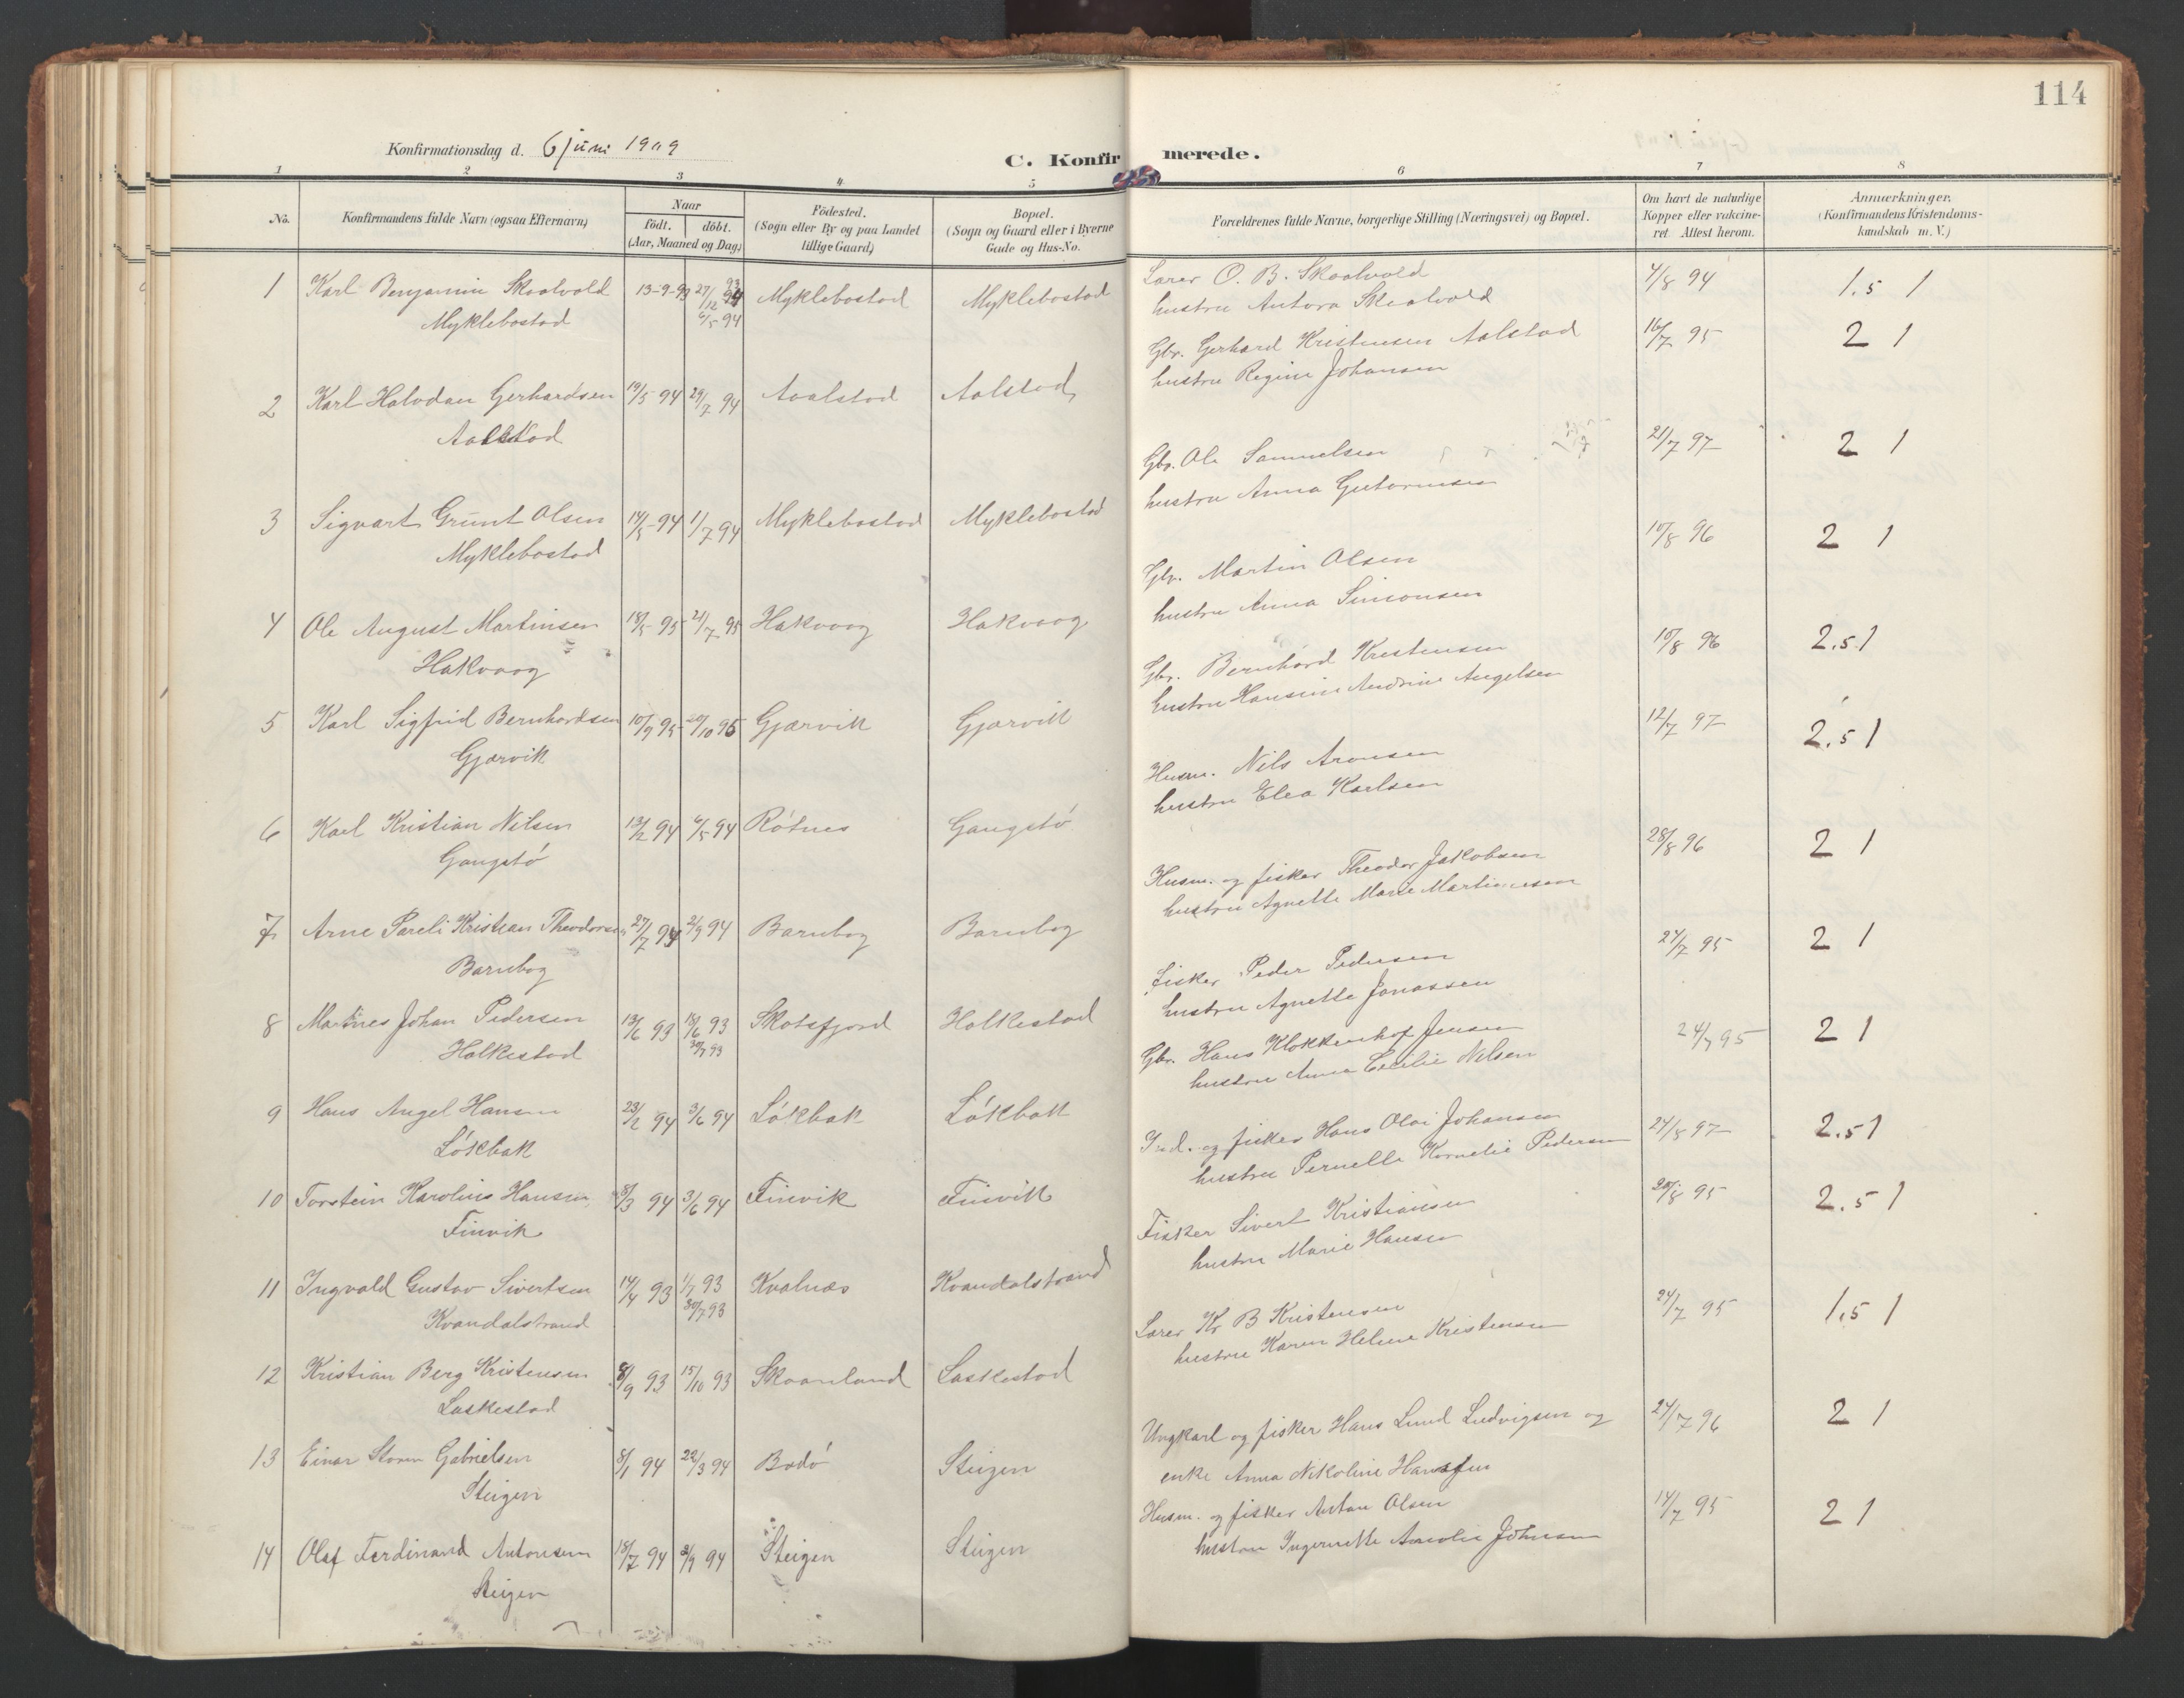 114
Konfirmationsdag d. 6 juni 1909
C. Konfirmerede.
1 2 3 4 5 6 7 8
No.
Konfirmandens fulde Navn (ogsaa Efternavn)
Naar
födt. döbt.
(Aar, Maaned og Dag)
Födested.
(Sogn eller By og paa Landet
tillige Gaard)
Bopæl.
(Sogn og Gaard eller i Byerne
Gade og Hus-No.
Forældrenes fulde Navne, borgerlige Stilling (Næringsvei) og Bopæl.
Om havt de naturlige
Kopper eller vakcine-
ret Attest herom.
Anmærkninger.
(Konfirmandens Kristendoms-
kundskab m. V.)
1 Karl Benjamin Skaalvold 13-9-93 27/12 93 Myklebostad Myklebostad Lærer O. B. Skaalvold 4/8 94 1.5 1
Myklebostad 6/5 94 hustru Antora Skaalvold
2 Karl Halvdan Gerhardsen 19/5 94 29/7 94 Aalstad Aalstad Gbr. Gerhard Kristensen Aalstad 16/7 95 2 1
Aalstad hustru Regine Johansen
3 Sigvart Grunt Olsen 14/5 94 1/7 94 Myklebostad Myklebostad Gbr. Ole Samuelsen 21/7 97 2 1
Myklebostad hustru Anna Gutormsen
4 Ole August Martinsen 18/5 95 21/7 95 Hakvaag Hakvaag Gbr. Martin Olsen 10/8 96 2 1
Hakvaag hustru Anna Simonsen
5 Karl Sigfrid Bernhardsen 10/9 95 20/10 95 Gjærvik Gjærvik Gbr. Bernhard Kristensen 10/8 96 2.5 1
Gjærvik hustru Hansine Andrine Angelsen
6 Karl Kristian Nilsen 13/2 94 6/5 94 Rötnes Gangstö Husm. Nils Aronsen 12/7 97 2.5 1
Gangstö hustru Elea Karlsen
7 Arne Pareli Kristian Theodorsen 27/7 94 2/9 94 Barnbog Barnbog Husm. og fisker Theodor Jakobsen 28/8 96 2 1
Barnbog hustru Agnette Marie Martinussen
8 Martines Johan Pedersen 13/6 93 18/6 93 Skotsfjord Holkestad Fisker Peder Pedersen 24/7 95 2 1
Holkestad 30/7 93 hustru Agnette Jonassen
9 Hans Angel Hansen 23/2 94 3/6 94 Lökbak Lökbak Gbr. Hans Klokkenhof Jensen 24/7 95 2 1
Lökbak hustru Anna Cecilie Nilsen
10 Torstein Karolius Hansen 8/3 94 3/6 94 Finvik Finvik Ind. og fisker Hans Olai Johansen 24/8 97 2.5 1
Finvik hustru Pernelle Kornelie Pedersen
11 Ingvald Gustav Sivertsen 14/4 93 1/7 93 Kvalnæs Kvandalstrand Fisker Sivert Kristiansen 20/8 95 2.5 1
Kvandalstrand 30/7 93 hustru Marie Hansen
12 Kristian Berg Kristensen 8/9 93 15/10 93 Skaanland Laskestad Lærer Kr B Kristensen 24/7 95 1.5 1
Laskestad hustru Karen Helene Kristensen
13 Einar Storm Gabrielsen 8/1 94 22/3 94 Bodö Steigen Ungkarl og fisker Hans Lund Ludvigsen og 24/7 96 2 1
Steigen enke Anna Nikoline Hansen
14 Olaf Ferdinand Antonsen 15/7 94 2/9 94 Steigen Steigen Husm. og fisker Anton Olsen 14/7 95 2 1
Steigen hustru Ingernette Amalie Johnsen